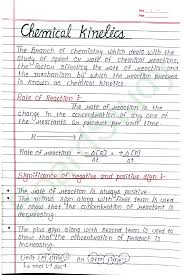 Chemical Kinetics
The Branch of chemistry which deals with the
study of speed or rate of chemical reactions,
the factor affecting the rate of reaction and
the mechanism by which the reaction proceed
is known as chemical kinetics.
Rate of Reaction :-
The rate of reaction is the
change in the concentration of any one of
the reactants or product per unit time.
R → P
Rate of reaction = -Δ[R]/Δt = +Δ[P]/Δt
Significance of negative and positive sign :-
• The rate of reaction is always positive.
• The minus sign along with first term is used
to show that the concentration of reactant is
decreasing.
• The plus sign along with second term is used to
show that the concentration of product is
increasing.
Unit